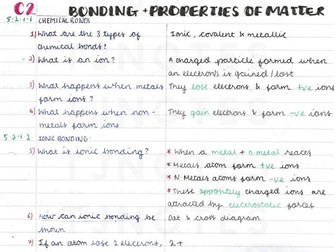 C2 BONDING + PROPERTIES OF MATTER
5.2.1.1 CHEMICAL BONDS
1) What are the 3 types of chemical bonds? Ionic, covalent & metallic
2) What is an ion? A charged particle formed when
an electron/s is gained/lost
3) What happens when metals They lose electrons & form +ve ions
form ions?
4) What happens when non- They gain electrons & form -ve ions
metals form ions
5.2.1.2 IONIC BONDING
5) What is ionic bonding? * When a metal + n-metal reacts
* Metals atom form +ve ions
* N Metals atoms form -ve ions
* These oppositely charged ions are
attracted by electrostatic forces
6) How can ionic bonding be Dot & cross diagram
shown
7) If an atom lose 2 electrons, 2+